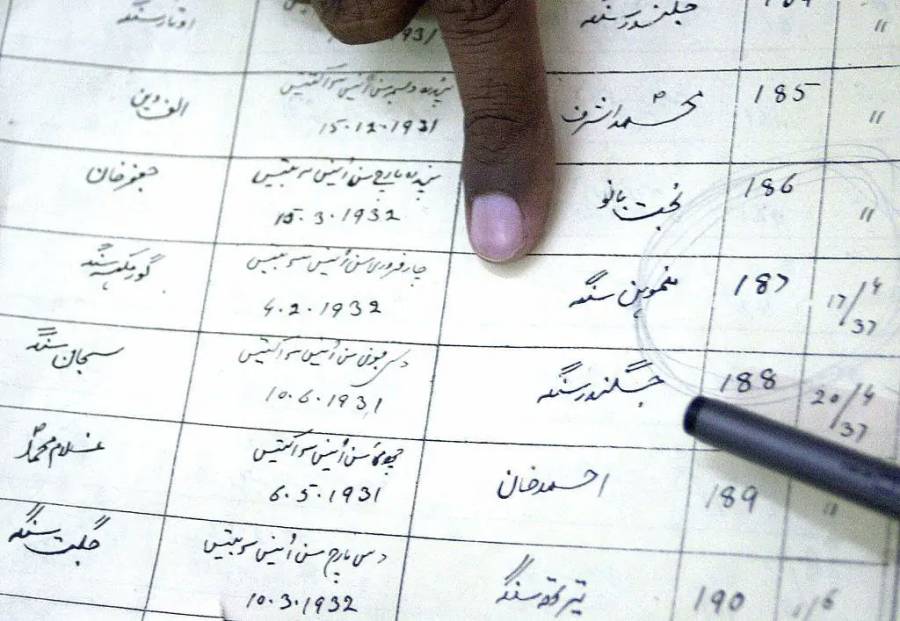 اوتار سنگھ
〃
185
محمد اشرف
پندرہ دسمبر سن انیس سو اکتیس
15.12.1931
الف دین
〃
186
بخت بانو
پندرہ مارچ سن انیس سو بتیس
15.3.1932
جعفر خان
17/4
37
187
منموہن سنگھ
چار فروری سن انیس سو بتیس
4.2.1932
گورمکھ سنگھ
20/4
37
188
جگندر سنگھ
دس جون سن انیس سو اکتیس
10.6.1931
سجان سنگھ
〃
189
احمد خان
چھ مئی سن انیس سو اکتیس
6.5.1931
غلام محمد
1/6
190
تیرتھ سنگھ
دس مارچ سن انیس سو بتیس
10.3.1932
جگت سنگھ